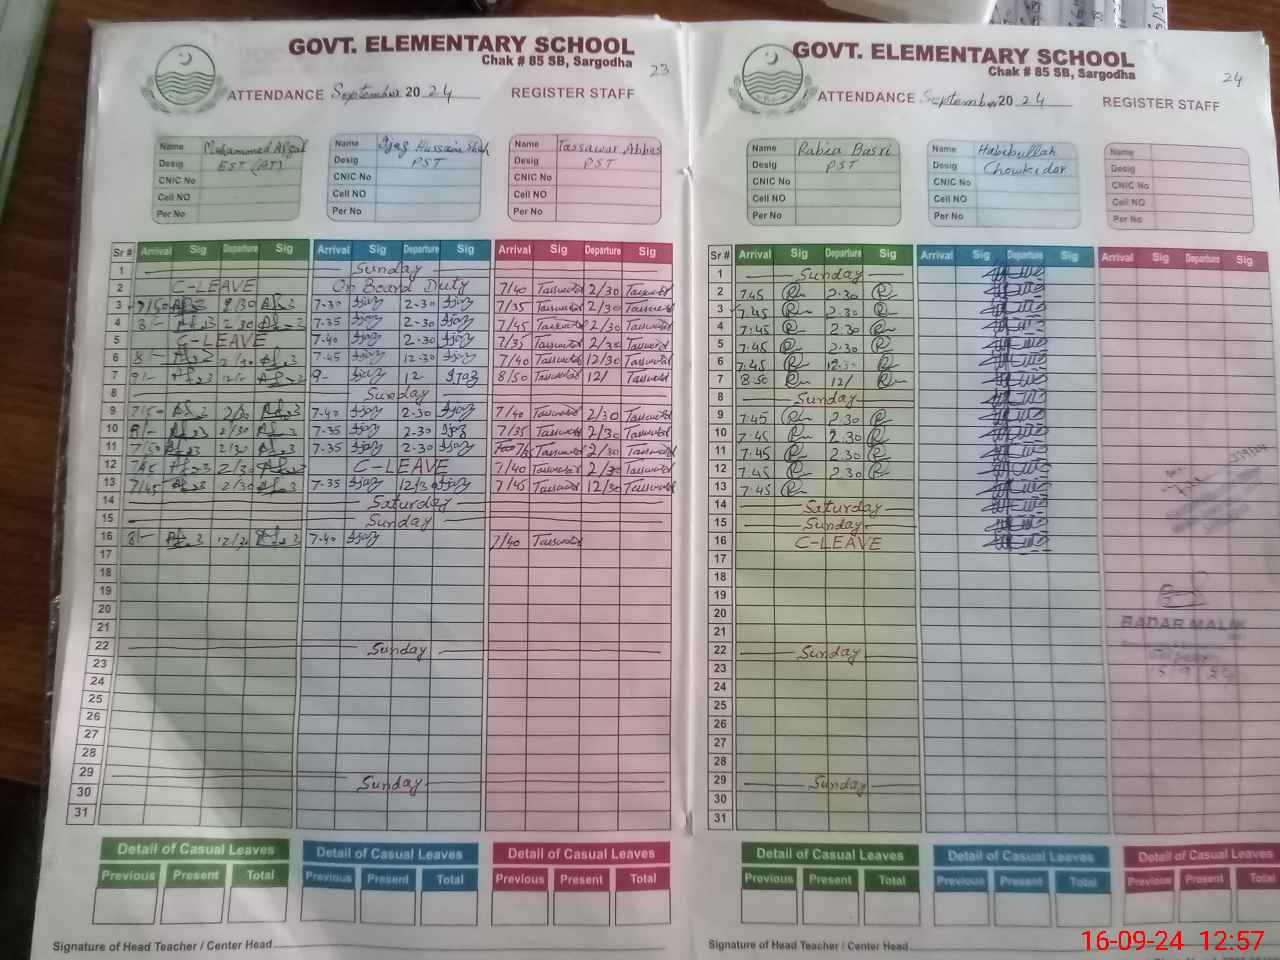 GOVT. ELEMENTARY SCHOOL
Chak # 85 SB, Sargodha
23
ATTENDANCE September 2024 REGISTER STAFF
Name Muhammad Afzal
Desig EST (AT)
CNIC No
Cell NO
Per No
Name Ijaz Hussain Shah
Desig PST
CNIC No
Cell NO
Per No
Name Tassawar Abbas
Desig PST
CNIC No
Cell NO
Per No
Sr # Arrival Sig Departure Sig Arrival Sig Departure Sig Arrival Sig Departure Sig
1 Sunday
2 C-LEAVE On Board Duty 7/40 Tassawar 2/30 Tassawar
3 7/50 2/30 7-30 Ijaz 2-30 Ijaz 7/35 Tassawar 2/30 Tassawar
4 8- 2 30 7-35 Ijaz 2-30 Ijaz 7/45 Tassawar 2/30 Tassawar
5 C-LEAVE 7-40 Ijaz 2-30 Ijaz 7/35 Tassawar 2/30 Tassawar
6 8- 7-45 Ijaz 12-30 Ijaz 7/40 Tassawar 12/30 Tassawar
7 9- 9- Ijaz 12- Ijaz 8/50 Tassawar 12/ Tassawar
8 Sunday
9 2/30 7-40 Ijaz 2-30 Ijaz 7/40 Tassawar 2/30 Tassawar
10 8/- 2/30 7-35 Ijaz 2-30 Ijaz 7/35 Tassawar 2/30 Tassawar
11 7/50 2/30 7-35 Ijaz 2-30 Ijaz Tassawar 2/30 Tassawar
12 7/45 2/30 C-LEAVE 7/40 Tassawar 2/30 Tassawar
13 7/45 2/30 7-35 Ijaz 12/30 Ijaz 7/45 Tassawar 12/30 Tassawar
14 Saturday
15 Sunday
16 8- 12/30 7-40 Ijaz 7/40 Tassawar
17
18
19
20
21
22 Sunday
23
24
25
26
27
28
29 Sunday
30
31
Detail of Casual Leaves Detail of Casual Leaves Detail of Casual Leaves
Previous Present Total Previous Present Total Previous Present Total
Signature of Head Teacher / Center Head
GOVT. ELEMENTARY SCHOOL
Chak # 85 SB, Sargodha
24
ATTENDANCE September 2024 REGISTER STAFF
Name Rabia Basri
Desig PST
CNIC No
Cell NO
Per No
Name Habibullah
Desig Chowkidar
CNIC No
Cell NO
Per No
Name
Desig
CNIC No
Cell NO
Per No
Sr # Arrival Sig Departure Sig Arrival Sig Departure Sig Arrival Sig Departure Sig
1 Sunday
2 7.45 2.30
3 7.45 2.30
4 7.45 2.30
5 7.45 2.30
6 7.45 12.30
7 8.50 12/
8 Sunday
9 7.45 2.30
10 7.45 2.30
11 7.45 2.30
12 7.45 2.30
13 7.45
14 Saturday
15 Sunday
16 C-LEAVE
17
18
19
20
21
22 Sunday
23
24
25
26
27
28
29 Sunday
30
31
BADAR MALIK
Detail of Casual Leaves Detail of Casual Leaves Detail of Casual Leaves
Previous Present Total Previous Present Total Previous Present Total
Signature of Head Teacher / Center Head
16-09-24 12:57